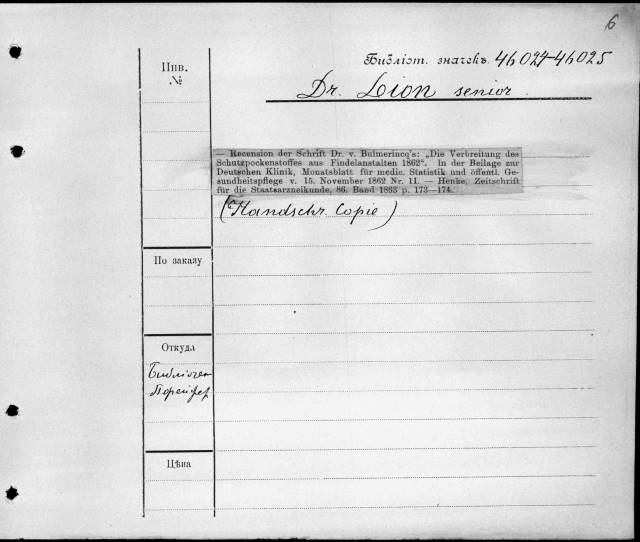 6
Библіот. значекъ 46024-46025
Инв.
№
Dr. Lion senior
— Recension der Schrift Dr. v. Bulmerincq's: „Die Verbreitung des
Schutzpockenstoffes aus Findelanstalten 1862“. In der Beilage zur
Deutschen Klinik, Monatsblatt für medic. Statistik und öffentl. Ge-
sundheitspflege v. 15. November 1862 Nr. 11. — Henke, Zeitschrift
für die Staatsarzneikunde, 86. Band 1863 p. 173—174.
(Handschr. Copie)
По заказу
Откуда
Цѣна